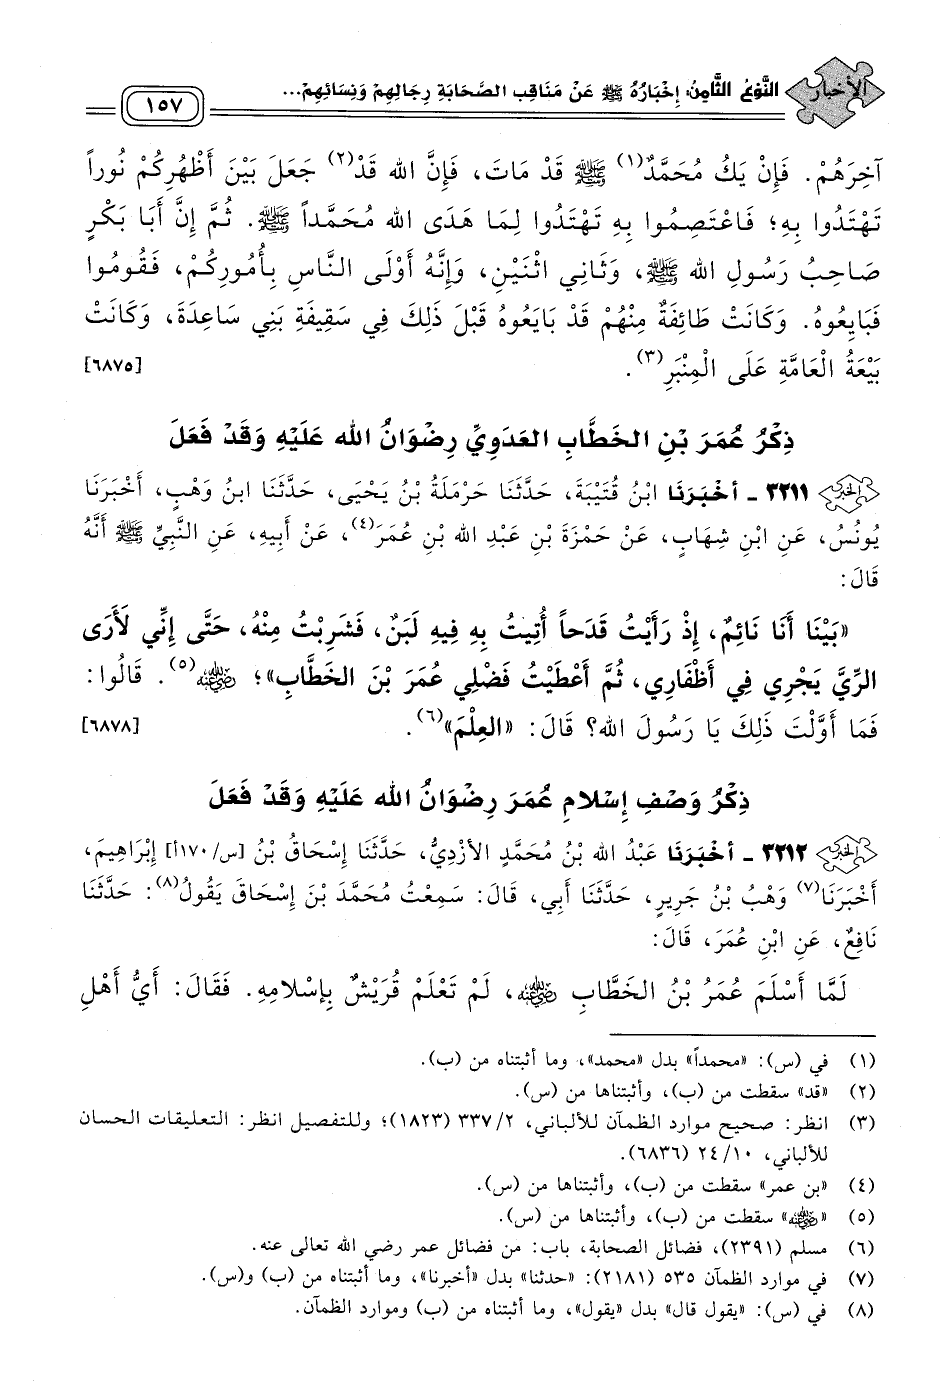 الأخبار
النَّوْعُ الثَّامِنُ: إِخْبَارُهُ ﷺ عَنْ مَنَاقِبِ الصَّحَابَةِ رِجَالِهِمْ وَنِسَائِهِمْ...
١٥٧
آخِرَهُمْ. فَإِنْ يَكُ مُحَمَّدٌ(١) ﷺ قَدْ مَاتَ، فَإِنَّ الله قَدْ(٢) جَعَلَ بَيْنَ أَظْهُرِكُمْ نُوراً
تَهْتَدُوا بِهِ؛ فَاعْتَصِمُوا بِهِ تَهْتَدُوا لِمَا هَدَى الله مُحَمَّداً ﷺ. ثُمَّ إِنَّ أَبَا بَكْرٍ
صَاحِبُ رَسُولِ الله ﷺ، وَثَانِي اثْنَيْنِ، وَإِنَّهُ أَوْلَى النَّاسِ بِأُمُورِكُمْ، فَقُومُوا
فَبَايِعُوهُ. وَكَانَتْ طَائِفَةٌ مِنْهُمْ قَدْ بَايَعُوهُ قَبْلَ ذَلِكَ فِي سَقِيفَةِ بَنِي سَاعِدَةَ، وَكَانَتْ
بَيْعَةُ الْعَامَّةِ عَلَى الْمِنْبَرِ(٣). [٦٨٧٥]
ذِكْرُ عُمَرَ بْنِ الخَطَّابِ العَدَوِيِّ رِضْوَانُ الله عَلَيْهِ وَقَدْ فَعَلَ
الخبر ٣٢١١ - أَخْبَرَنَا ابْنُ قُتَيْبَةَ، حَدَّثَنَا حَرْمَلَةُ بْنُ يَحْيَى، حَدَّثَنَا ابنُ وَهْبٍ، أَخْبَرَنَا
يُونُسُ، عَنِ ابْنِ شِهَابٍ، عَنْ حَمْزَةَ بْنِ عَبْدِ الله بْنِ عُمَرَ(٤)، عَنْ أَبِيهِ، عَنِ النَّبِيِّ ﷺ أَنَّهُ
قَالَ:
«بَيْنَا أَنَا نَائِمٌ، إِذْ رَأَيْتُ قَدَحاً أُتِيتُ بِهِ فِيهِ لَبَنٌ، فَشَرِبْتُ مِنْهُ، حَتَّى إِنِّي لَأَرَى
الرِّيَّ يَجْرِي فِي أَظْفَارِي، ثُمَّ أَعْطَيْتُ فَضْلِي عُمَرَ بْنَ الخَطَّابِ»؛ رضي الله عنه(٥). قَالُوا:
فَمَا أَوَّلْتَ ذَلِكَ يَا رَسُولَ الله؟ قَالَ: «العِلْمَ»(٦). [٦٨٧٨]
ذِكْرُ وَصْفِ إِسْلَامِ عُمَرَ رِضْوَانُ الله عَلَيْهِ وَقَدْ فَعَلَ
الخبر ٣٢١٢ - أَخْبَرَنَا عَبْدُ الله بْنُ مُحَمَّدٍ الأَزْدِيُّ، حَدَّثَنَا إِسْحَاقُ بْنُ [س/١٧٠أ] إِبْرَاهِيمَ،
أَخْبَرَنَا(٧) وَهْبُ بْنُ جَرِيرٍ، حَدَّثَنَا أَبِي، قَالَ: سَمِعْتُ مُحَمَّدَ بْنَ إِسْحَاقَ يَقُولُ(٨): حَدَّثَنَا
نَافِعٌ، عَنِ ابْنِ عُمَرَ، قَالَ:
لَمَّا أَسْلَمَ عُمَرُ بْنُ الخَطَّابِ رضي الله عنه، لَمْ تَعْلَمْ قُرَيْشٌ بِإِسْلَامِهِ. فَقَالَ: أَيُّ أَهْلِ
(١) في (س): «محمداً» بدل «محمد»، وما أثبتناه من (ب).
(٢) «قد» سقطت من (ب)، وأثبتناها من (س).
(٣) انظر: صحيح موارد الظمآن للألباني، ٢/ ٣٣٧ (١٨٢٣)؛ وللتفصيل انظر: التعليقات الحسان
للألباني، ١٠/ ٢٤ (٦٨٣٦).
(٤) «بن عمر» سقطت من (ب)، وأثبتناها من (س).
(٥) «رضي الله عنه» سقطت من (ب)، وأثبتناها من (س).
(٦) مسلم (٢٣٩١)، فضائل الصحابة، باب: من فضائل عمر رضي الله تعالى عنه.
(٧) في موارد الظمآن ٥٣٥ (٢١٨١): «حدثنا» بدل «أخبرنا»، وما أثبتناه من (ب) و(س).
(٨) في (س): «يقول قال» بدل «يقول»، وما أثبتناه من (ب) وموارد الظمآن.